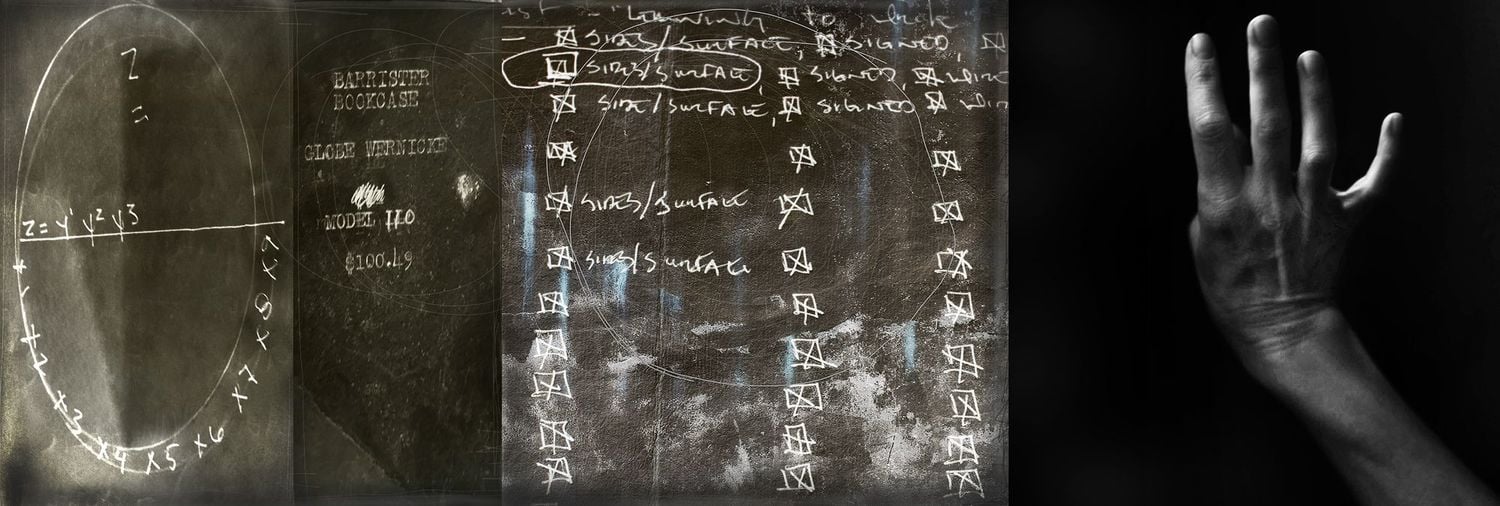 Z
=
Z = Y¹ Y² Y³
X3 X4 X5 X6 X7 X8 X9
BARRISTER
BOOKCASE
GLOBE WERNICKE
MODEL 110
$100.49
to
SIDES/SURFACE, SIGNED,
SIDES/SURFACE, SIGNED,
SIDES/SURFACE, SIGNED
SIDES/SURFACE
SIDES/SURFACE